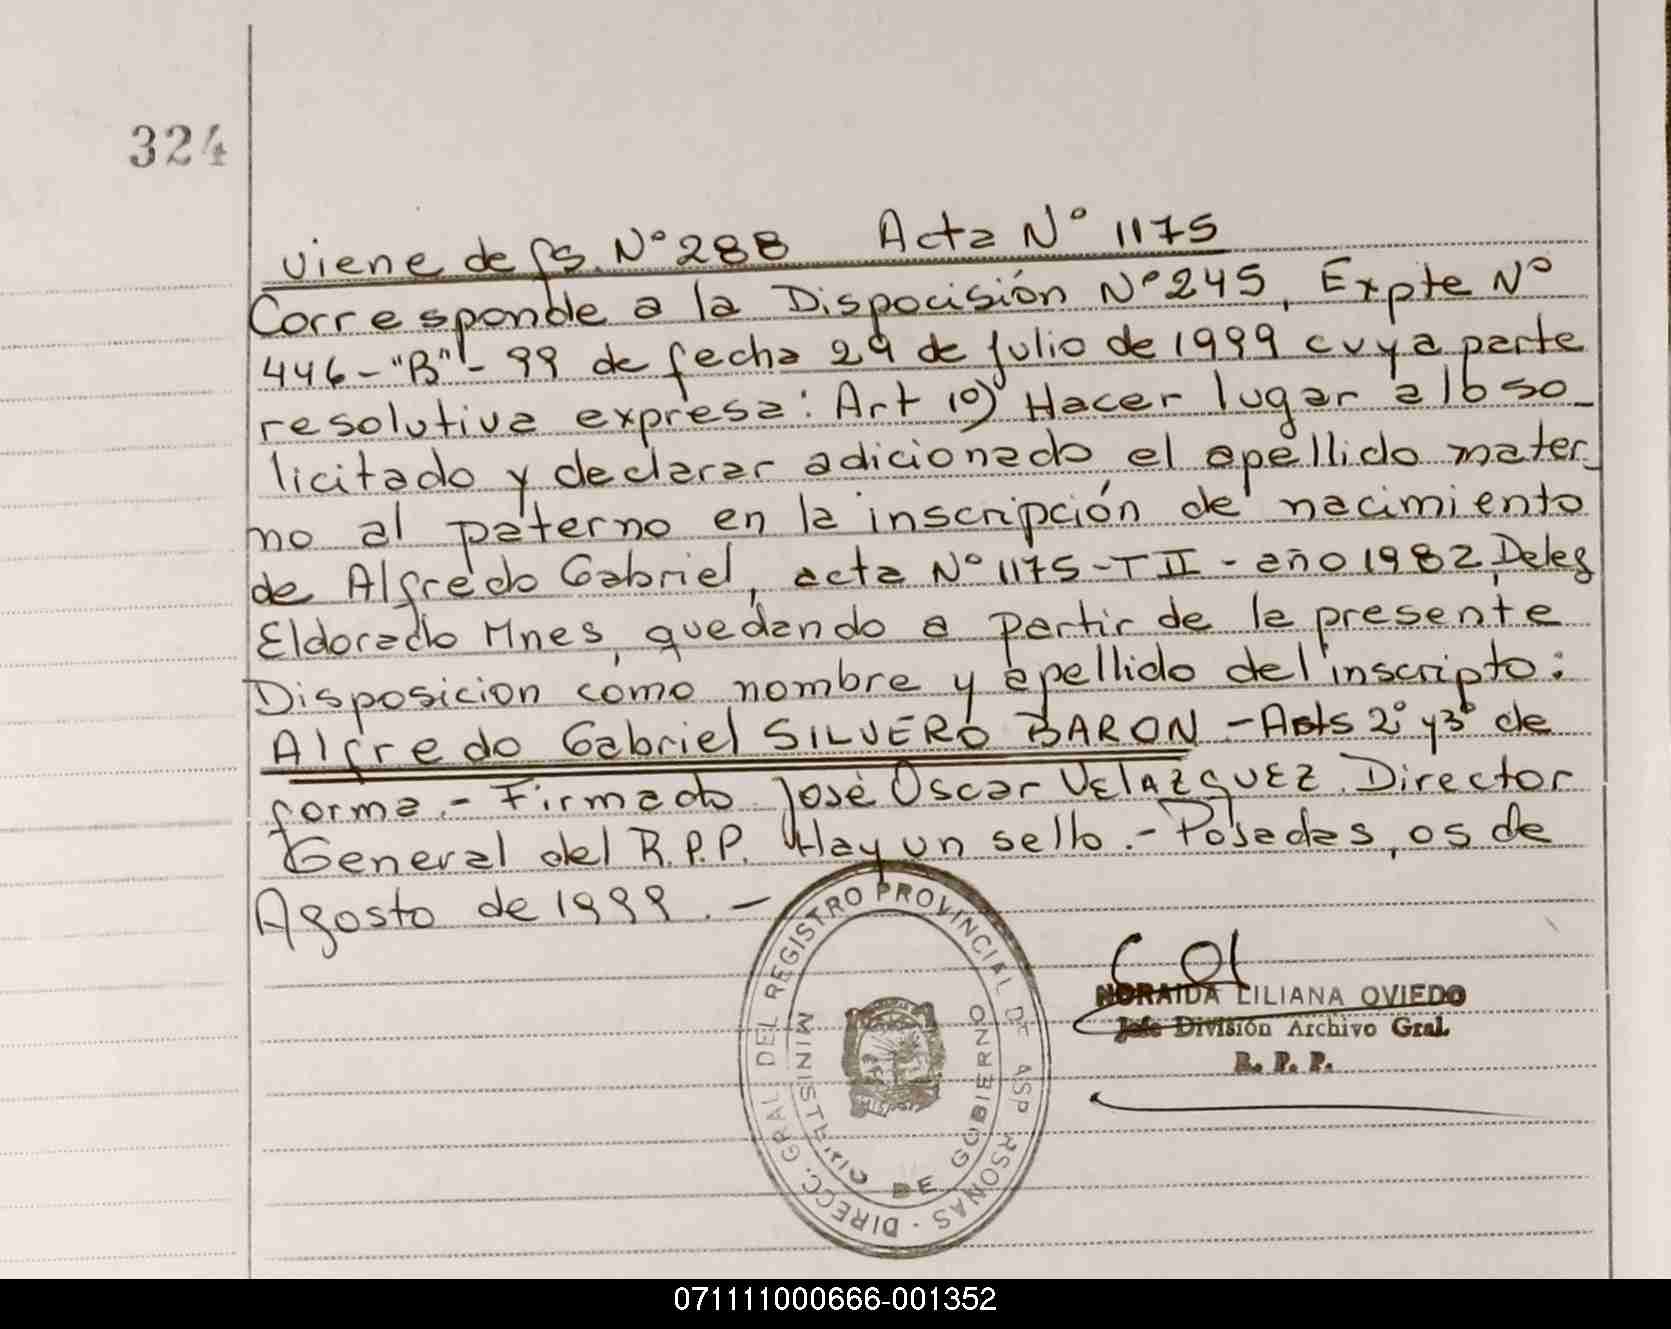 324
viene de fs. Nº 288 Acta Nº 1175
Corresponde a la Dispocisión Nº 245, Expte Nº
446-"B"-99 de fecha 29 de Julio de 1999 cuya parte
resolutiva expresa: Art 1º) Hacer lugar a lo so_
licitado y declarar adicionado el apellido mater_
no al paterno en la inscripción de nacimiento
de Alfredo Gabriel, acta Nº 1175-TII-año 1982, Deleg
Eldorado Mnes, quedando a partir de la presente
Disposicion como nombre y apellido del inscripto:
Alfredo Gabriel SILVERO BARON - Arts 2º y 3º de
forma.- Firmado José Oscar VELAZQUEZ. Director
General del R.P.P. Hay un sello.- Posadas, 05 de
Agosto de 1999.-
DIRECC. GRAL DEL REGISTRO PROVINCIAL DE PERSONAS
MINISTERIO DE GOBIERNO
NORAIDA LILIANA OVIEDO
Jefe División Archivo Gral.
R. P. P.
071111000666-001352